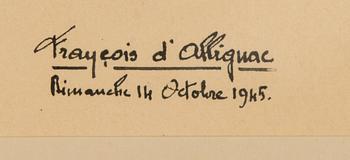 François d'Allignac
Dimanche 14 Octobre 1945.